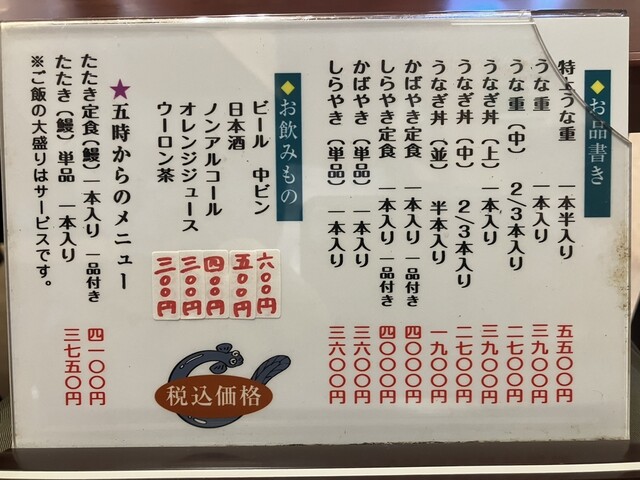 ◆お品書き
特上うな重 一本半入り 五五〇〇円
うな重 一本入り 三九〇〇円
うな重（中） 2/3本入り 二七〇〇円
うなぎ丼（上） 一本入り 三九〇〇円
うなぎ丼（中） 2/3本入り 二七〇〇円
うなぎ丼（並） 半本入り 一九〇〇円
かばやき定食 一本入り 一品付き 四〇〇〇円
しらやき定食 一本入り 一品付き 四〇〇〇円
かばやき（単品） 一本入り 三六〇〇円
しらやき（単品） 一本入り 三六〇〇円
◆お飲みもの
ビール 中ビン 六〇〇円
日本酒 五〇〇円
ノンアルコール 四〇〇円
オレンジジュース 三〇〇円
ウーロン茶 三〇〇円
★五時からのメニュー
たたき定食（鰻） 一本入り 一品付き 四一〇〇円
たたき（鰻）単品 一本入り 三七五〇円
※ご飯の大盛りはサービスです。
税込価格